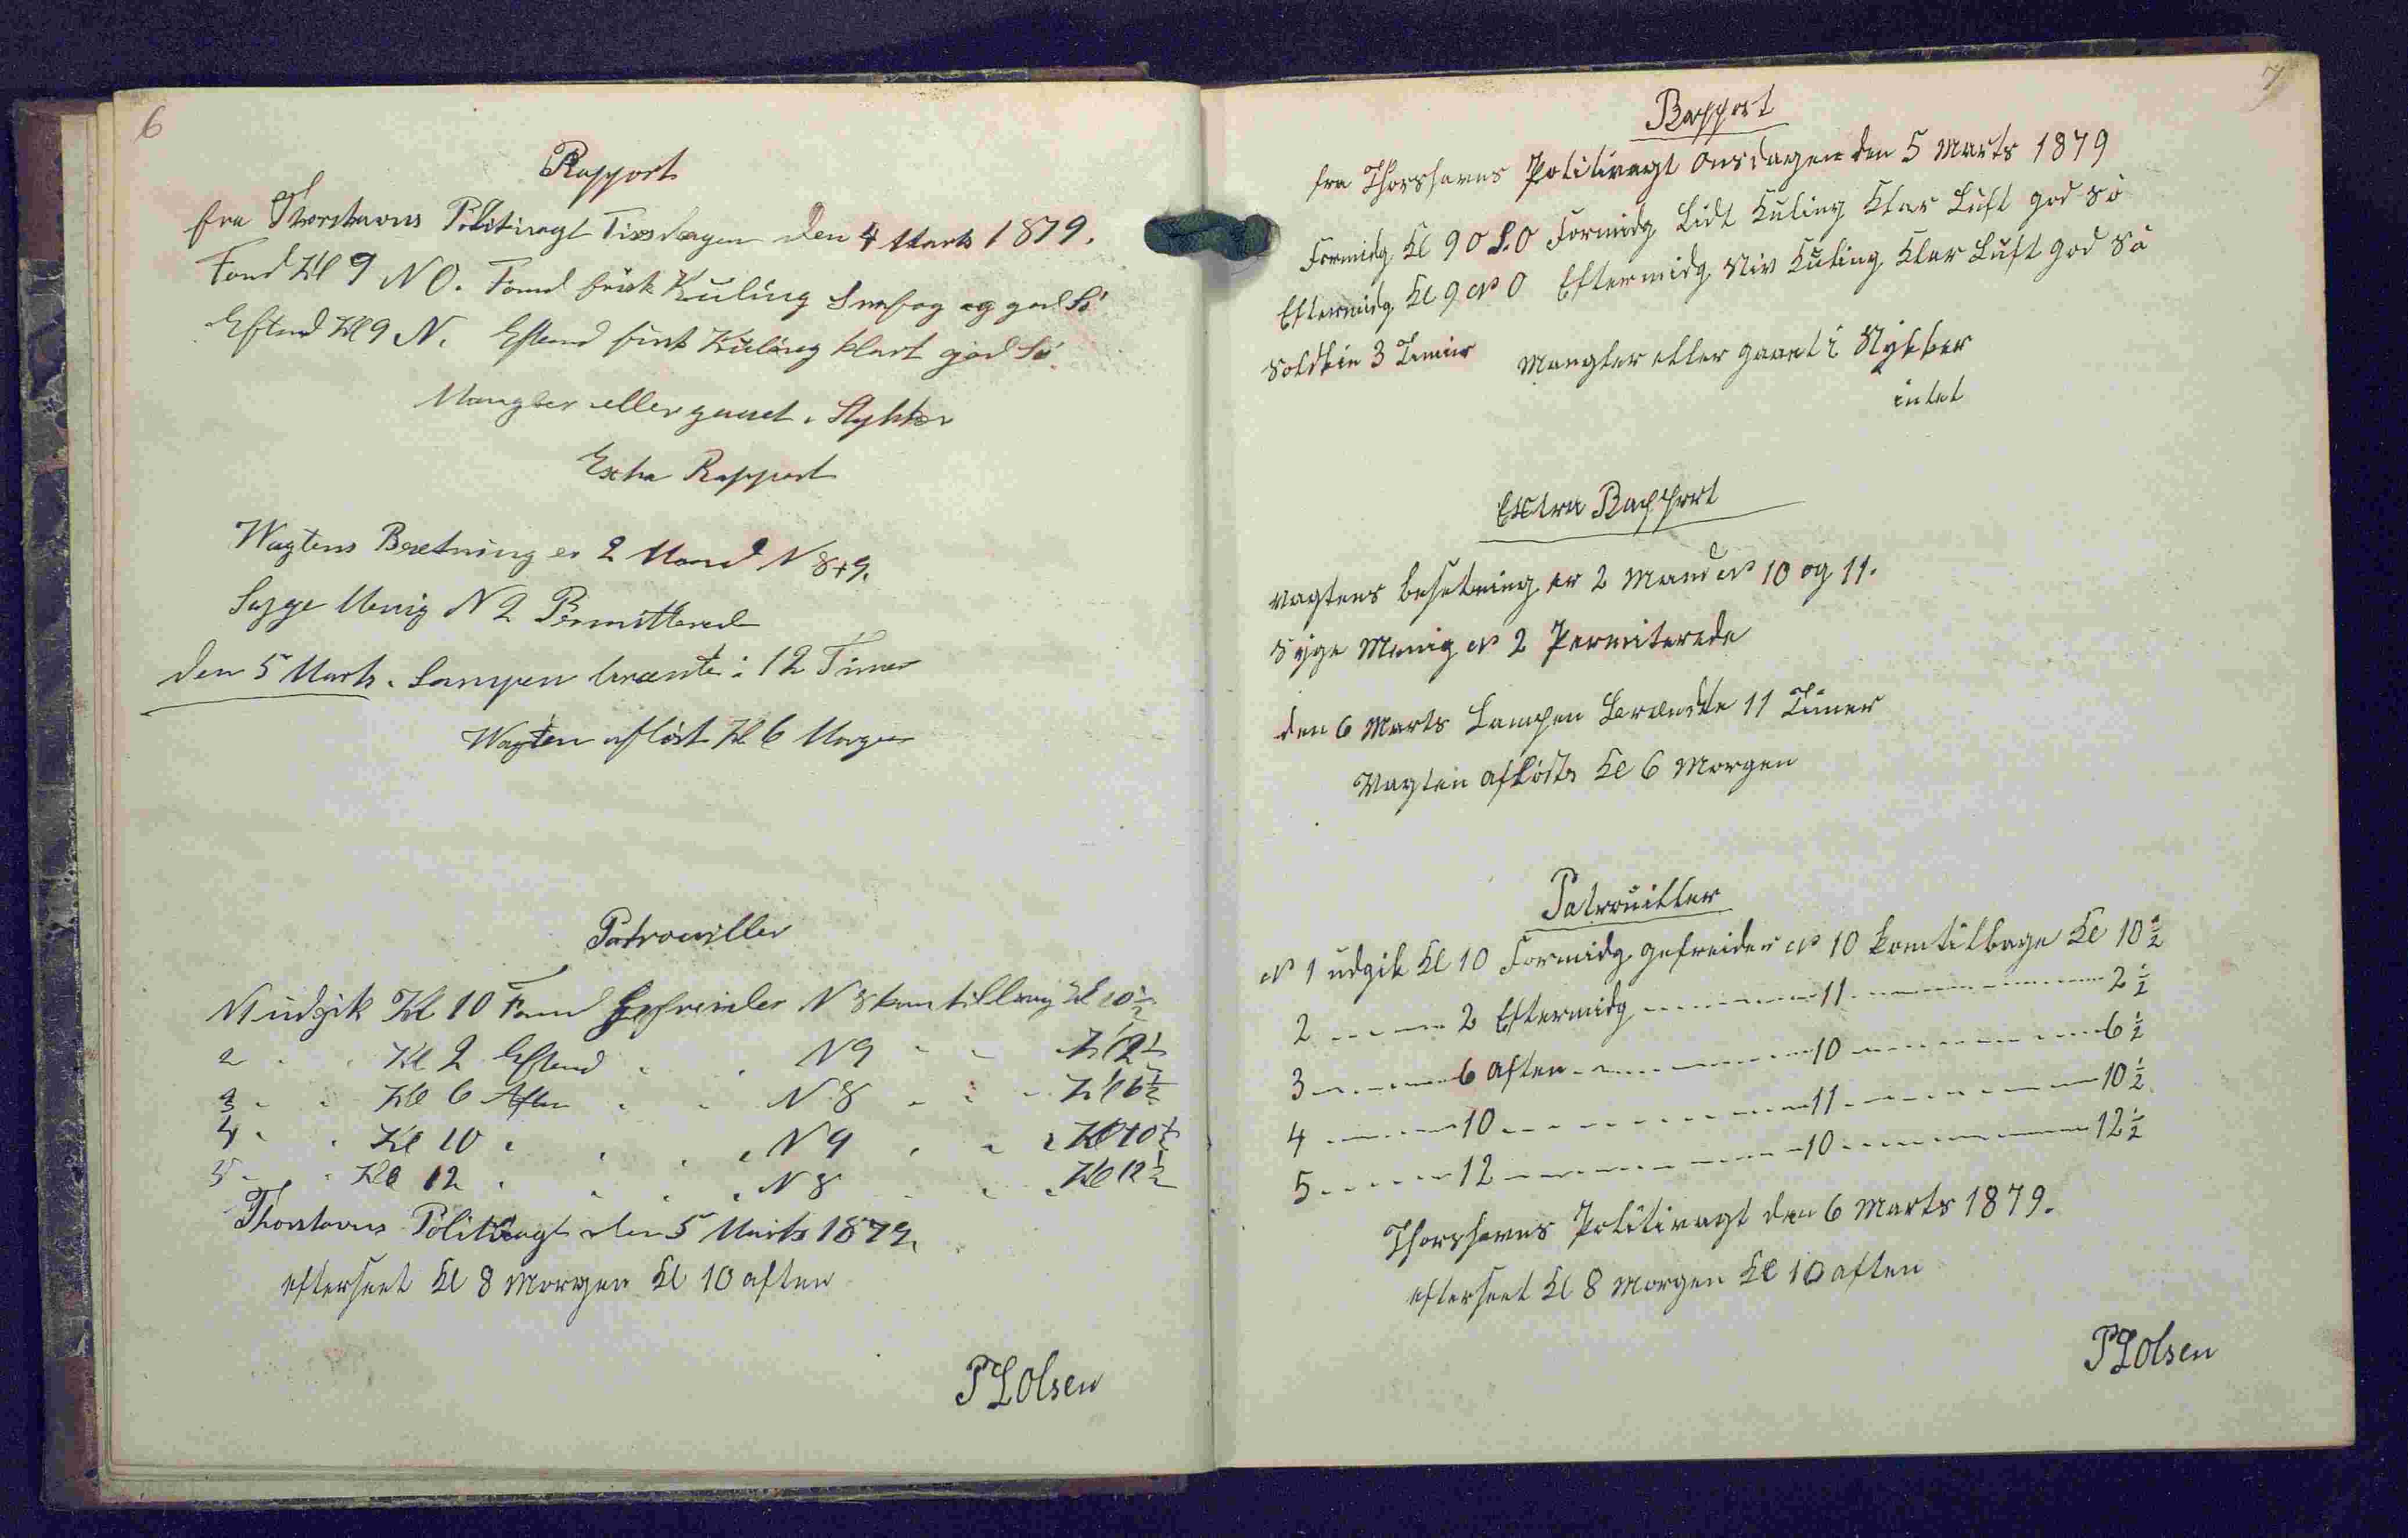 6
Rapport
fra Thorshavns Politivagt Tirsdagen den 4 Marts 1879.
Formd Kl 9 NO. Formd frisk Kuling Snefog og god Sö
Eftmd Kl 9 N. Eftmd frisk Kuling klart god Sö.
Mangler eller gaaet i Stykker
Extra Rapport
Wagtens Besetning er 2 Mand N 8+9.
Syge Menig N 2 Permitterede
den 5 Marts. Lampen brænte i 12 Timer
Wagten aflöst Kl 6 Morgen
Patrouiller
N1 udgik Kl 10 Formd Gefreider N 8 kom tilbag Kl 10½
2 " " Kl 2 Eftmd " " N 9 " " Kl 2½
3 " " Kl 6 Aften " " N 8 " " " Kl 6½
4 " " Kl 10 " " " " N 9 " " " Kl 10½
5 " " Kl 12 " " " " N 8 " " " Kl 12½
Thorshavns Politivagt den 5 Marts 1879.
efterseet Kl 8 Morgen Kl 10 aften
P L Olsen
7
Rapport
fra Thorshavns Politivagt Onsdagen den 5 Marts 1879
Formidg Kl 9 O S.O Formidg Lidt Kuling Klar Luft god Sö
Eftermidg Kl 9 N O Eftermidg Stiv Kuling Klar Luft god Sö
Solskin 3 Timer Mangler eller gaaet i Stykker
intet
Extra Rapport
Vagtens besetning er 2 Mand N 10 og 11.
Syge Menig N 2 Permiterede
den 6 Marts Lampen Brændte 11 Timer
Vagten aflöst Kl 6 Morgen
Patrouiller
N 1 udgik Kl 10 Formidg gefreider N 10 kom tilbage Kl 10½
2 - - - - 2 Eftermidg - - - - 11 - - - - 2½
3 - - - - 6 aften - - - - 10 - - - - 6½
4 - - - - 10 - - - - 11 - - - - 10½
5 - - - - 12 - - - - 10 - - - - 12½
Thorshavns Politivagt den 6 Marts 1879.
efterseet Kl 8 Morgen Kl 10 aften
P L Olsen